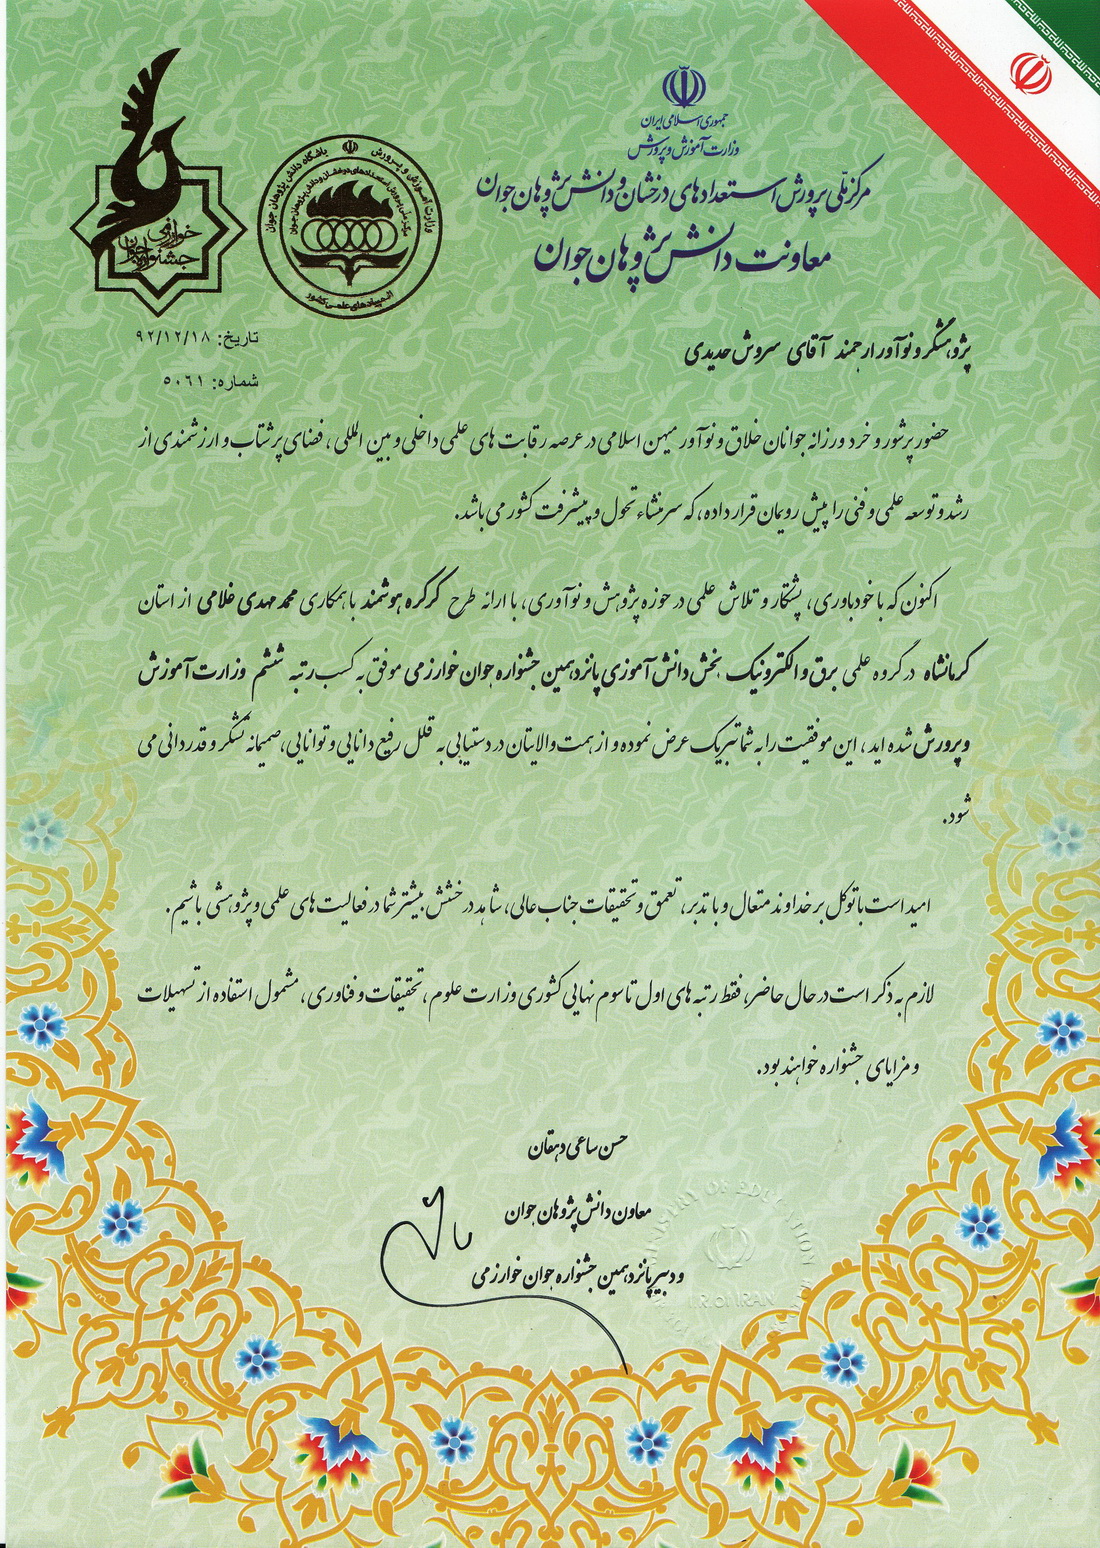 جمهوری اسلامی ایران
وزارت آموزش و پرورش
مرکز ملی پرورش استعدادهای درخشان و دانش پژوهان جوان
معاونت دانش پژوهان جوان
خوارزمی
جشنواره جوان
وزارت آموزش و پرورش
باشگاه دانش پژوهان جوان
مرکز ملی پرورش استعدادهای درخشان و دانش پژوهان جوان
المپیادهای علمی کشور
تاریخ: ۹۲/۱۲/۱۸
شماره: ۵۰۶۱
پژوهشگر و نوآور ارجمند آقای سروش حدیدی
حضور پرشور و خرد ورزانه جوانان خلاق و نوآور میهن اسلامی در عرصه رقابت های علمی داخلی و بین المللی ، فضای پرشتاب و ارزشمندی از
رشد و توسعه علمی و فنی را پیش رویمان قرار داده، که سرمنشاء تحول و پیشرفت کشور می باشد.
اکنون که با خودباوری ، پشتکار و تلاش علمی در حوزه پژوهش و نوآوری ، با ارائه طرح کرکره هوشمند با همکاری محمد مهدی غلامی از استان
کرمانشاه در گروه علمی برق و الکترونیک بخش دانش آموزی پانزدهمین جشنواره جوان خوارزمی موفق به کسب رتبه ششم وزارت آموزش
و پرورش شده اید ، این موفقیت را به شما تبریک عرض نموده و از همت والایتان در دستیابی به قلل رفیع دانایی و توانایی، صمیمانه تشکر و قدردانی می
شود.
امید است با توکل بر خداوند متعال و با تدبر، تعمق و تحقیقات جناب عالی، شاهد درخشش بیشتر شما در فعالیت های علمی و پژوهشی باشیم.
لازم به ذکر است در حال حاضر، فقط رتبه های اول تا سوم نهایی کشوری وزارت علوم ، تحقیقات و فناوری ، مشمول استفاده از تسهیلات
و مزایای جشنواره خواهند بود.
حسن ساعی دهقان
معاون دانش پژوهان جوان
و دبیر پانزدهمین جشنواره جوان خوارزمی
MINISTRY OF EDUCATION
I.R.OF IRAN